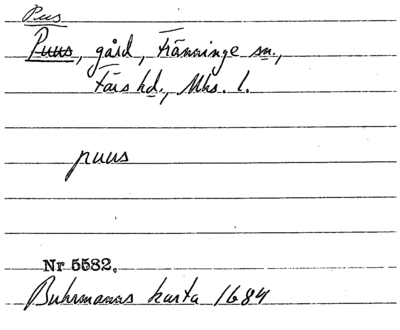 Pus
Puus, gård, Tranninge sn.,
Färs hd., Mhs. l.
puus
Nr 5582.
Buhrmanns karta 1684